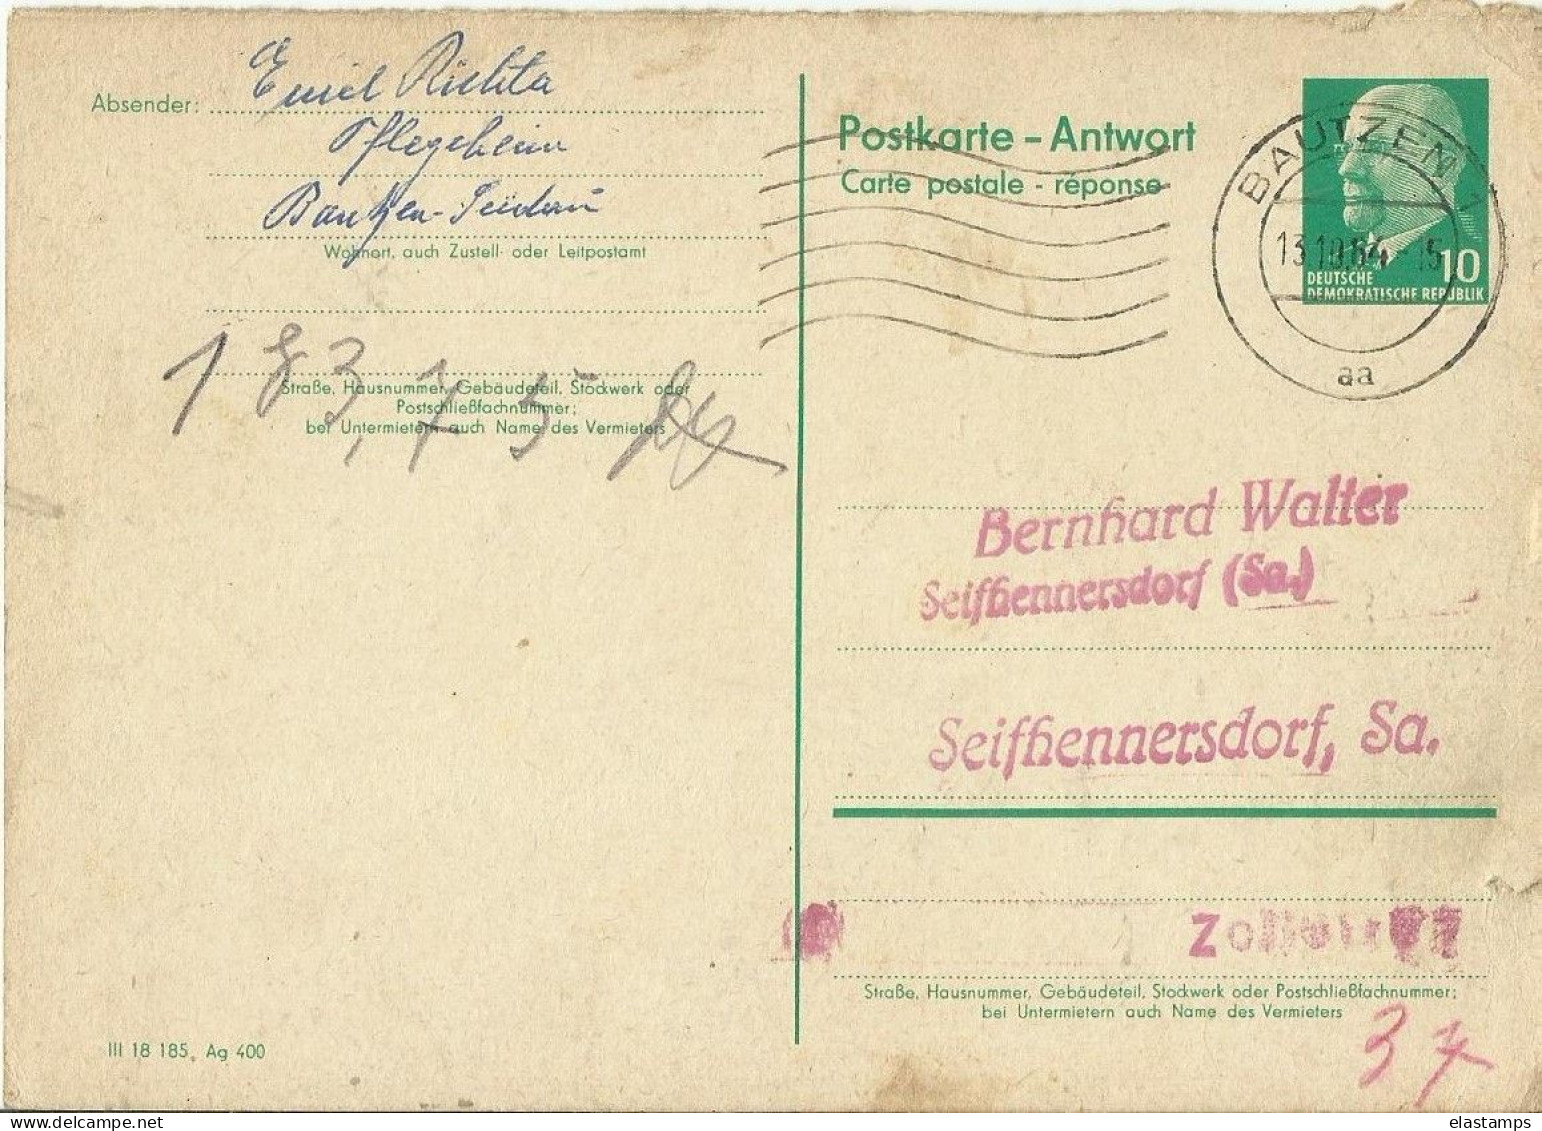 Absender: Emil Richter
Pflegeheim
Bautzen-Seidau
Wohnort, auch Zustell- oder Leitpostamt
183,75
Straße, Hausnummer, Gebäudeteil, Stockwerk oder
Postschließfachnummer;
bei Untermietern auch Name des Vermieters
III 18 185, Ag 400
Postkarte – Antwort
Carte postale - réponse
BAUTZEN 1
13.10.64 - 15
aa
10
DEUTSCHE
DEMOKRATISCHE REPUBLIK
Bernhard Walter
Seifhennersdorf (Sa.)
Seifhennersdorf, Sa.
Straße, Hausnummer, Gebäudeteil, Stockwerk oder Postschließfachnummer;
bei Untermietern auch Name des Vermieters
37
elastamps